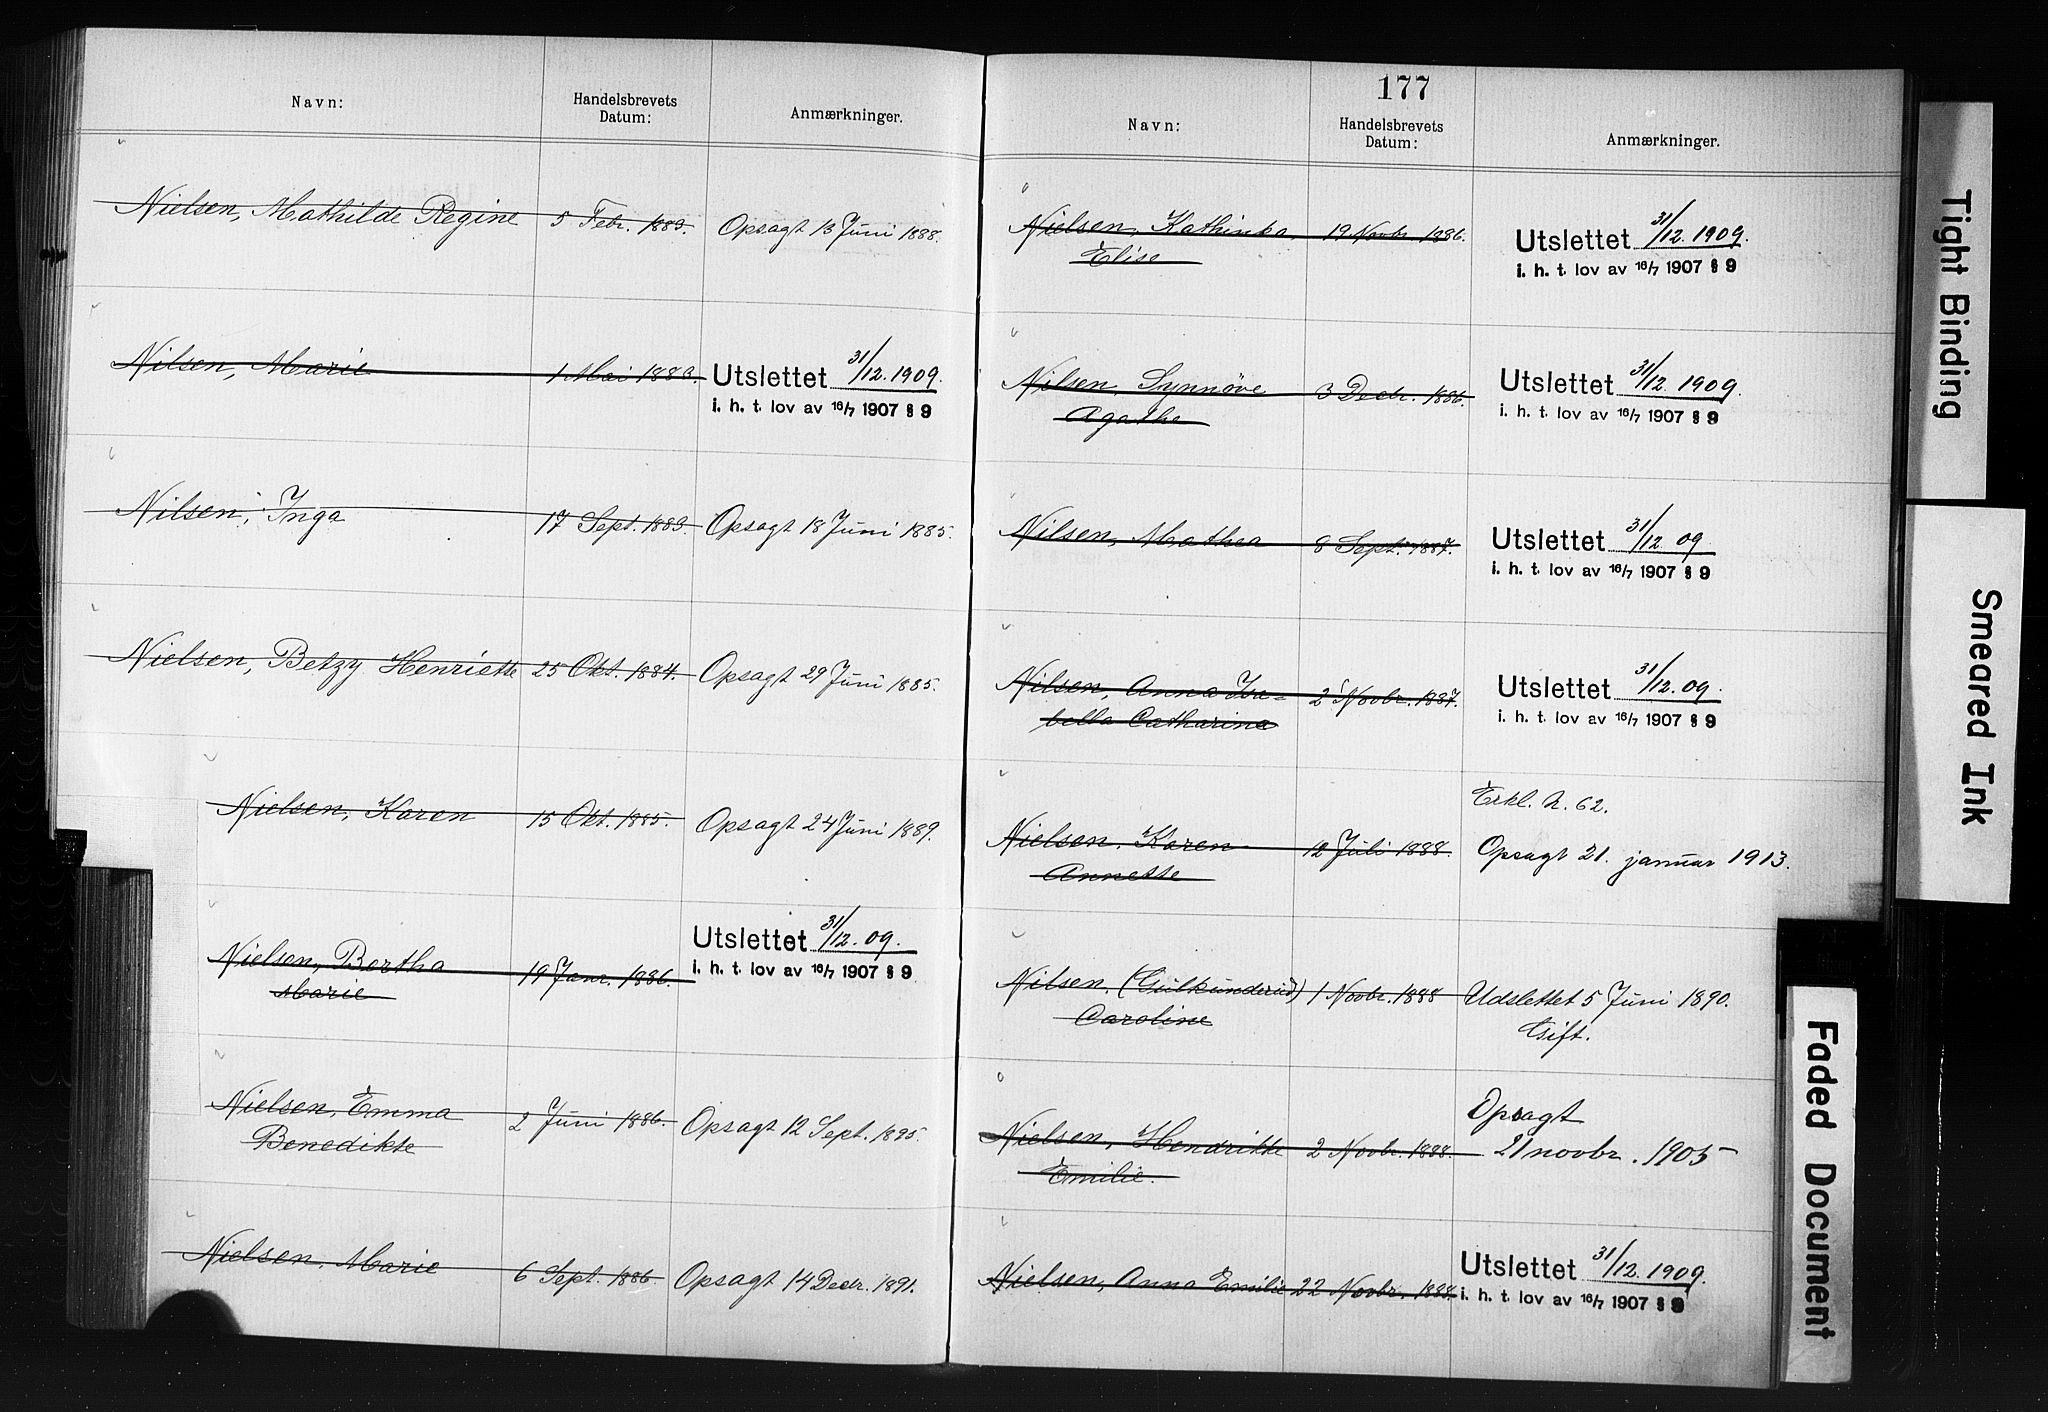 Navn:
Handelsbrevets
Datum:
Anmærkninger.
Nielsen, Mathilde Regine 5 Febr. 1883. Opsagt 13 Juni 1888.
Nilsen, Marie 1 Mai 1883. Utslettet 31/12. 1909.
i. h. t. lov av 16/7 1907 § 9
Nilsen, Inga 17 Sept. 1883. Opsagt 18 Juni 1885.
Nielsen, Betzy Henriette 25 Okt. 1884. Opsagt 29 Juni 1885.
Nielsen, Karen 15 Okt. 1885. Opsagt 24 Juni 1889.
Nielsen, Bertha 19 Janr. 1886. Utslettet 31/12. 09.
Marie i. h. t. lov av 16/7 1907 § 9
Nielsen, Emma 2 Juni 1886. Opsagt 12 Sept. 1895.
Benedikte
Nielsen, Marie 6 Sept. 1886. Opsagt 14 Decr. 1891.
177
Navn:
Handelsbrevets
Datum:
Anmærkninger.
Nielsen, Kathinka 19 Novbr. 1886. Utslettet 31/12. 1909.
Elise i. h. t. lov av 16/7 1907 § 9
Nilsen, Synnøve 3 Decbr. 1886. Utslettet 31/12. 1909.
Agathe i. h. t. lov av 16/7 1907 § 9
Nilsen, Mathea 8 Sept. 1887. Utslettet 31/12 09
i. h. t. lov av 16/7 1907 § 9
Nilsen, Anna Isa- 2 Novbr. 1887. Utslettet 31/12. 09.
bella Catharina i. h. t. lov av 16/7 1907 § 9
Erkl. N. 62.
Nielsen, Karen 12 Juli 1888. Opsagt 21. januar 1913.
Annette
Nilsen, (Gulkunderud) 1 Novbr. 1888 Udslettet 5 Juni 1890.
Caroline Gift.
Opsagt
Nielsen, Hendrikke 2 Novbr. 1888. 21 novbr. 1905
Emilie.
Nielsen, Anna Emilie 22 Novbr. 1888. Utslettet 31/12. 1909.
i. h. t. lov av 16/7 1907 § 9
Tight Binding
Smeared Ink
Faded Document